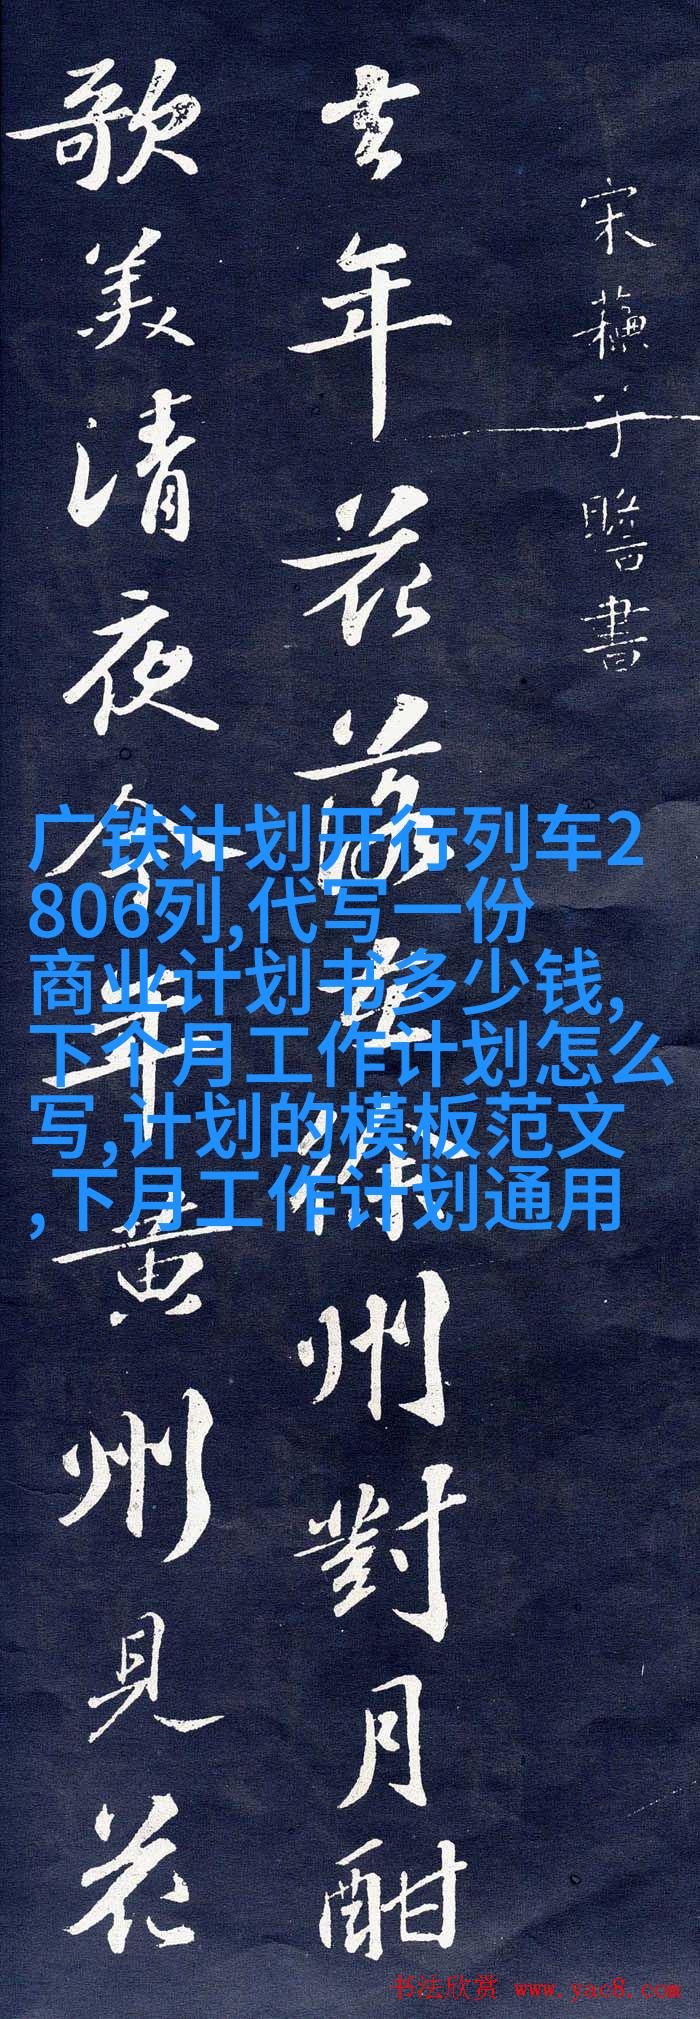 宋蘓子瞻書
去年花落在徐州對月酣
歌美清夜今年黄州見花
广铁计划开行列车2
806列,代写一份
商业计划书多少钱,
下个月工作计划怎么
写,计划的模板范文
,下月工作计划通用
书法欣赏 www.yac8.com